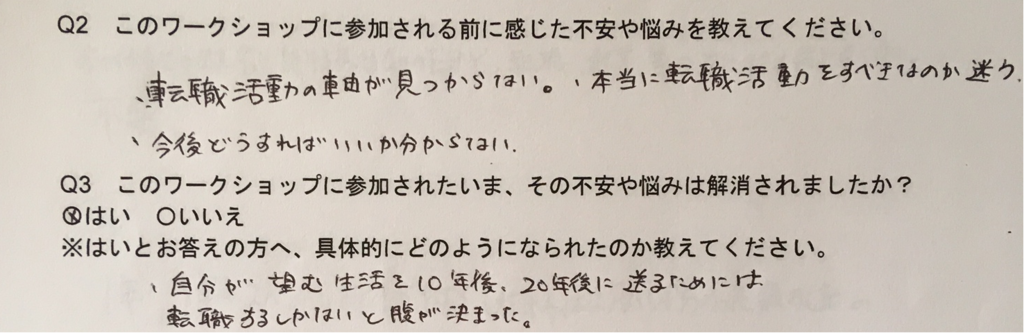 Q2　このワークショップに参加される前に感じた不安や悩みを教えてください。
、転職活動の軸が見つからない。、本当に転職活動をすべきなのか迷う.
、今後どうすればいいか分からない.
Q3　このワークショップに参加されたいま、その不安や悩みは解消されましたか？
⊗はい　○いいえ
※はいとお答えの方へ、具体的にどのようになられたのか教えてください。
、自分が望む生活を10年後、20年後に送るためには
転職するしかないと腹が決まった。